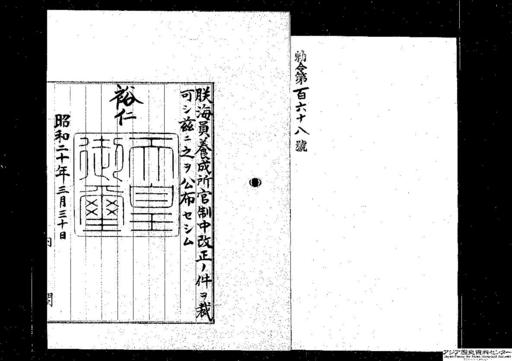 勅令第百六十八號
朕海員養成所官制中改正ノ件ヲ裁
可シ茲ニ之ヲ公布セシム
裕仁
天皇
御璽
昭和二十年三月三十日
内閣
アジア歴史資料センター